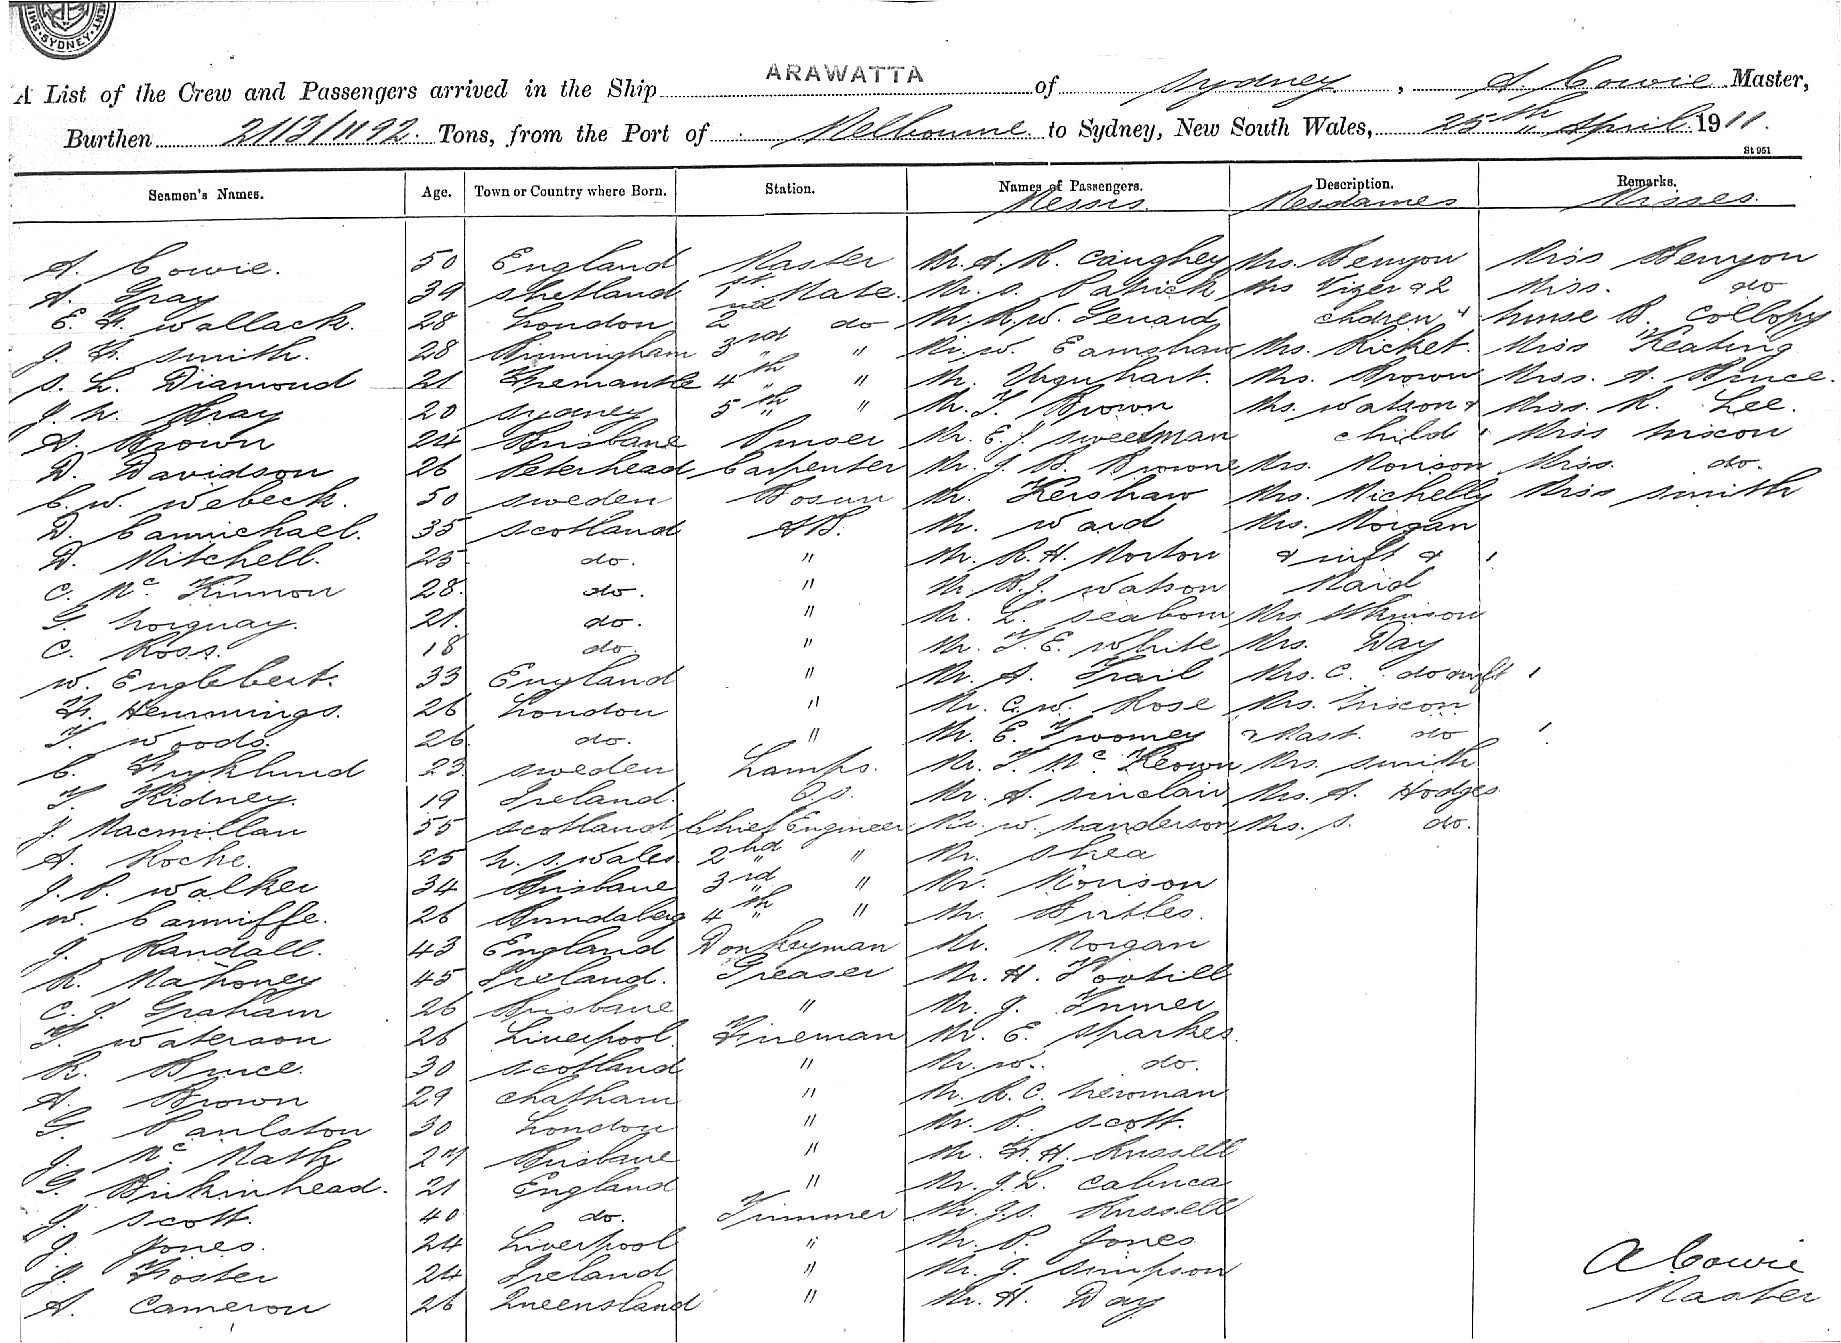 SYDNEY
A List of the Crew and Passengers arrived in the Ship ARAWATTA of Sydney, A Cowie Master,
Burthen 2113/1192 Tons, from the Port of Melbourne to Sydney, New South Wales, 25th April 1911.
St 951
Seamen's Names. Age. Town or Country where Born. Station. Names of Passengers. Description. Remarks.
Messrs. Mesdames Misses.
A. Cowie. 50 England Master Mr. A. R. Caughey Mrs. Benyon Miss Benyon
A. Gray 39 Shetland 1st Mate. Mr. S. Patrick Mrs Vizer & 2 Miss. do
E. F. Wallack. 28 London 2nd do Mr. R. W. Gerrard chdren & nurse B. Collopy
J. F. Smith. 28 Birmingham 3rd " " Mr. W. Earnshaw Mrs. Ricket. Miss Keating
S. L. Diamond 21 Fremantle 4th " " Mr. Urquhart. Mrs. Brown Miss. A. Bruce.
J. W. Bray 20 Sydney 5th " " Mr. T. Brown Mrs. Watson & Miss. R. Lee.
A. Brown 24 Brisbane Purser Mr. E. J. Sweetman child Miss Nixon
D. Davidson 26 Peterhead Carpenter Mr. J. B. Browne Mrs. Morison Miss. do.
C. W. Webeck. 50 Sweden Bosun Mr. Kershaw Mrs. Michelly Miss Smith
D. Carmichael. 35 Scotland AB. Mr. Ward Mrs. Morgan
D. Mitchell. 25 do. " Mr. R. H. Morton & inft &
C. Mc Kinnon 28. do. " Mr B. J. Watson Maid
G. Norquay. 21. do. " Mr. L. Seaborn Mrs. Atkinson
C. Ross. 18 do. " Mr. T. E. White Mrs. Day
W. Englebert. 33 England " Mr. A. Trail Mrs. C. do inft
F. Hemmings. 26 London " Mr. C. W. Rose Mrs. Nixon
T. Woods. 26 do. " Mr. E. Twomey & Mast. do
C. 23 Sweden Lamps. Mr. T. Mc Keown Mrs. Smith
T. Kidney. 19 Ireland. O.S. Mr. A. Sinclair Mrs. A. Hodges
J. Macmillan 55 Scotland Chief Engineer Mr. W. Sanderson Mrs. S. do.
A. Roche. 25 N. S. Wales 2nd " " Mr. Shea
J. P. Walker 34 Brisbane 3rd " " Mr. Morison
W. Canniffe. 26 Bundaberg 4th " " Mr. Birtles.
J. Randall. 43 England Donkeyman Mr. Morgan
R. Mahoney 45 Ireland. Greaser Mr. H. Tootill
C. J. Graham 26 Brisbane " Mr. J. Turner
T. Waterson 26 Liverpool. Fireman Mr. E. Sparkes.
R. Bruce. 30 Scotland " Mr. W. do.
A. Brown 29 Chatham " Mr. R. C. Newman
G. Paulston 30 London " Mr. P. Scott.
J. Mc Math 27 Brisbane " Mr. F. H. Russell
G. Birkinhead. 21 England " Mr. J. L. Cabuca
J. Scott. 40 do. Trimmer Mr. J. S. Russell
J. Jones. 24 Liverpool " Mr. P. Jones
J. Foster 24 Ireland " Mr. J. Simpson
A. Cameron 26 Queensland " Mr. H. Day
A Cowie
Master